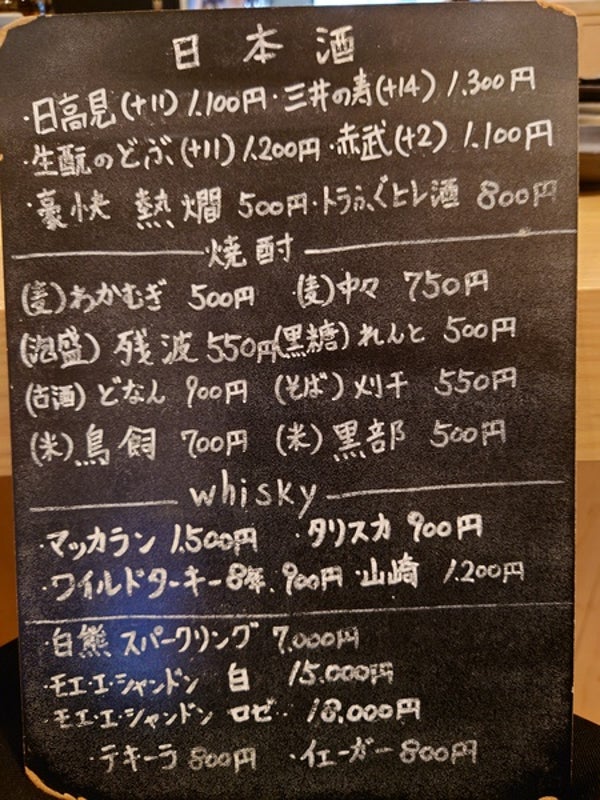 日本酒
・日高見(+11) 1.100円・三井の寿(+14) 1.300円
・生酛のどぶ(+11) 1.200円・赤武(+2) 1.100円
・豪快 熱燗 500円・トラふぐヒレ酒 800円
焼酎
(麦)わかむぎ 500円 (麦)中々 750円
(泡盛) 残波 550円(黒糖)れんと 500円
(古酒)どなん 900円 (そば)刈干 550円
(米)鳥飼 700円 (米)黒部 500円
whisky
・マッカラン 1.500円 ・タリスカ 900円
・ワイルドターキー8年. 900円・山崎 1.200円
・白熊 スパークリング 7.000円
・モエ・エ・シャンドン 白 15.000円
・モエ・エ・シャンドン ロゼ・・ 18.000円
・テキーラ 800円 ・イェーガー 800円